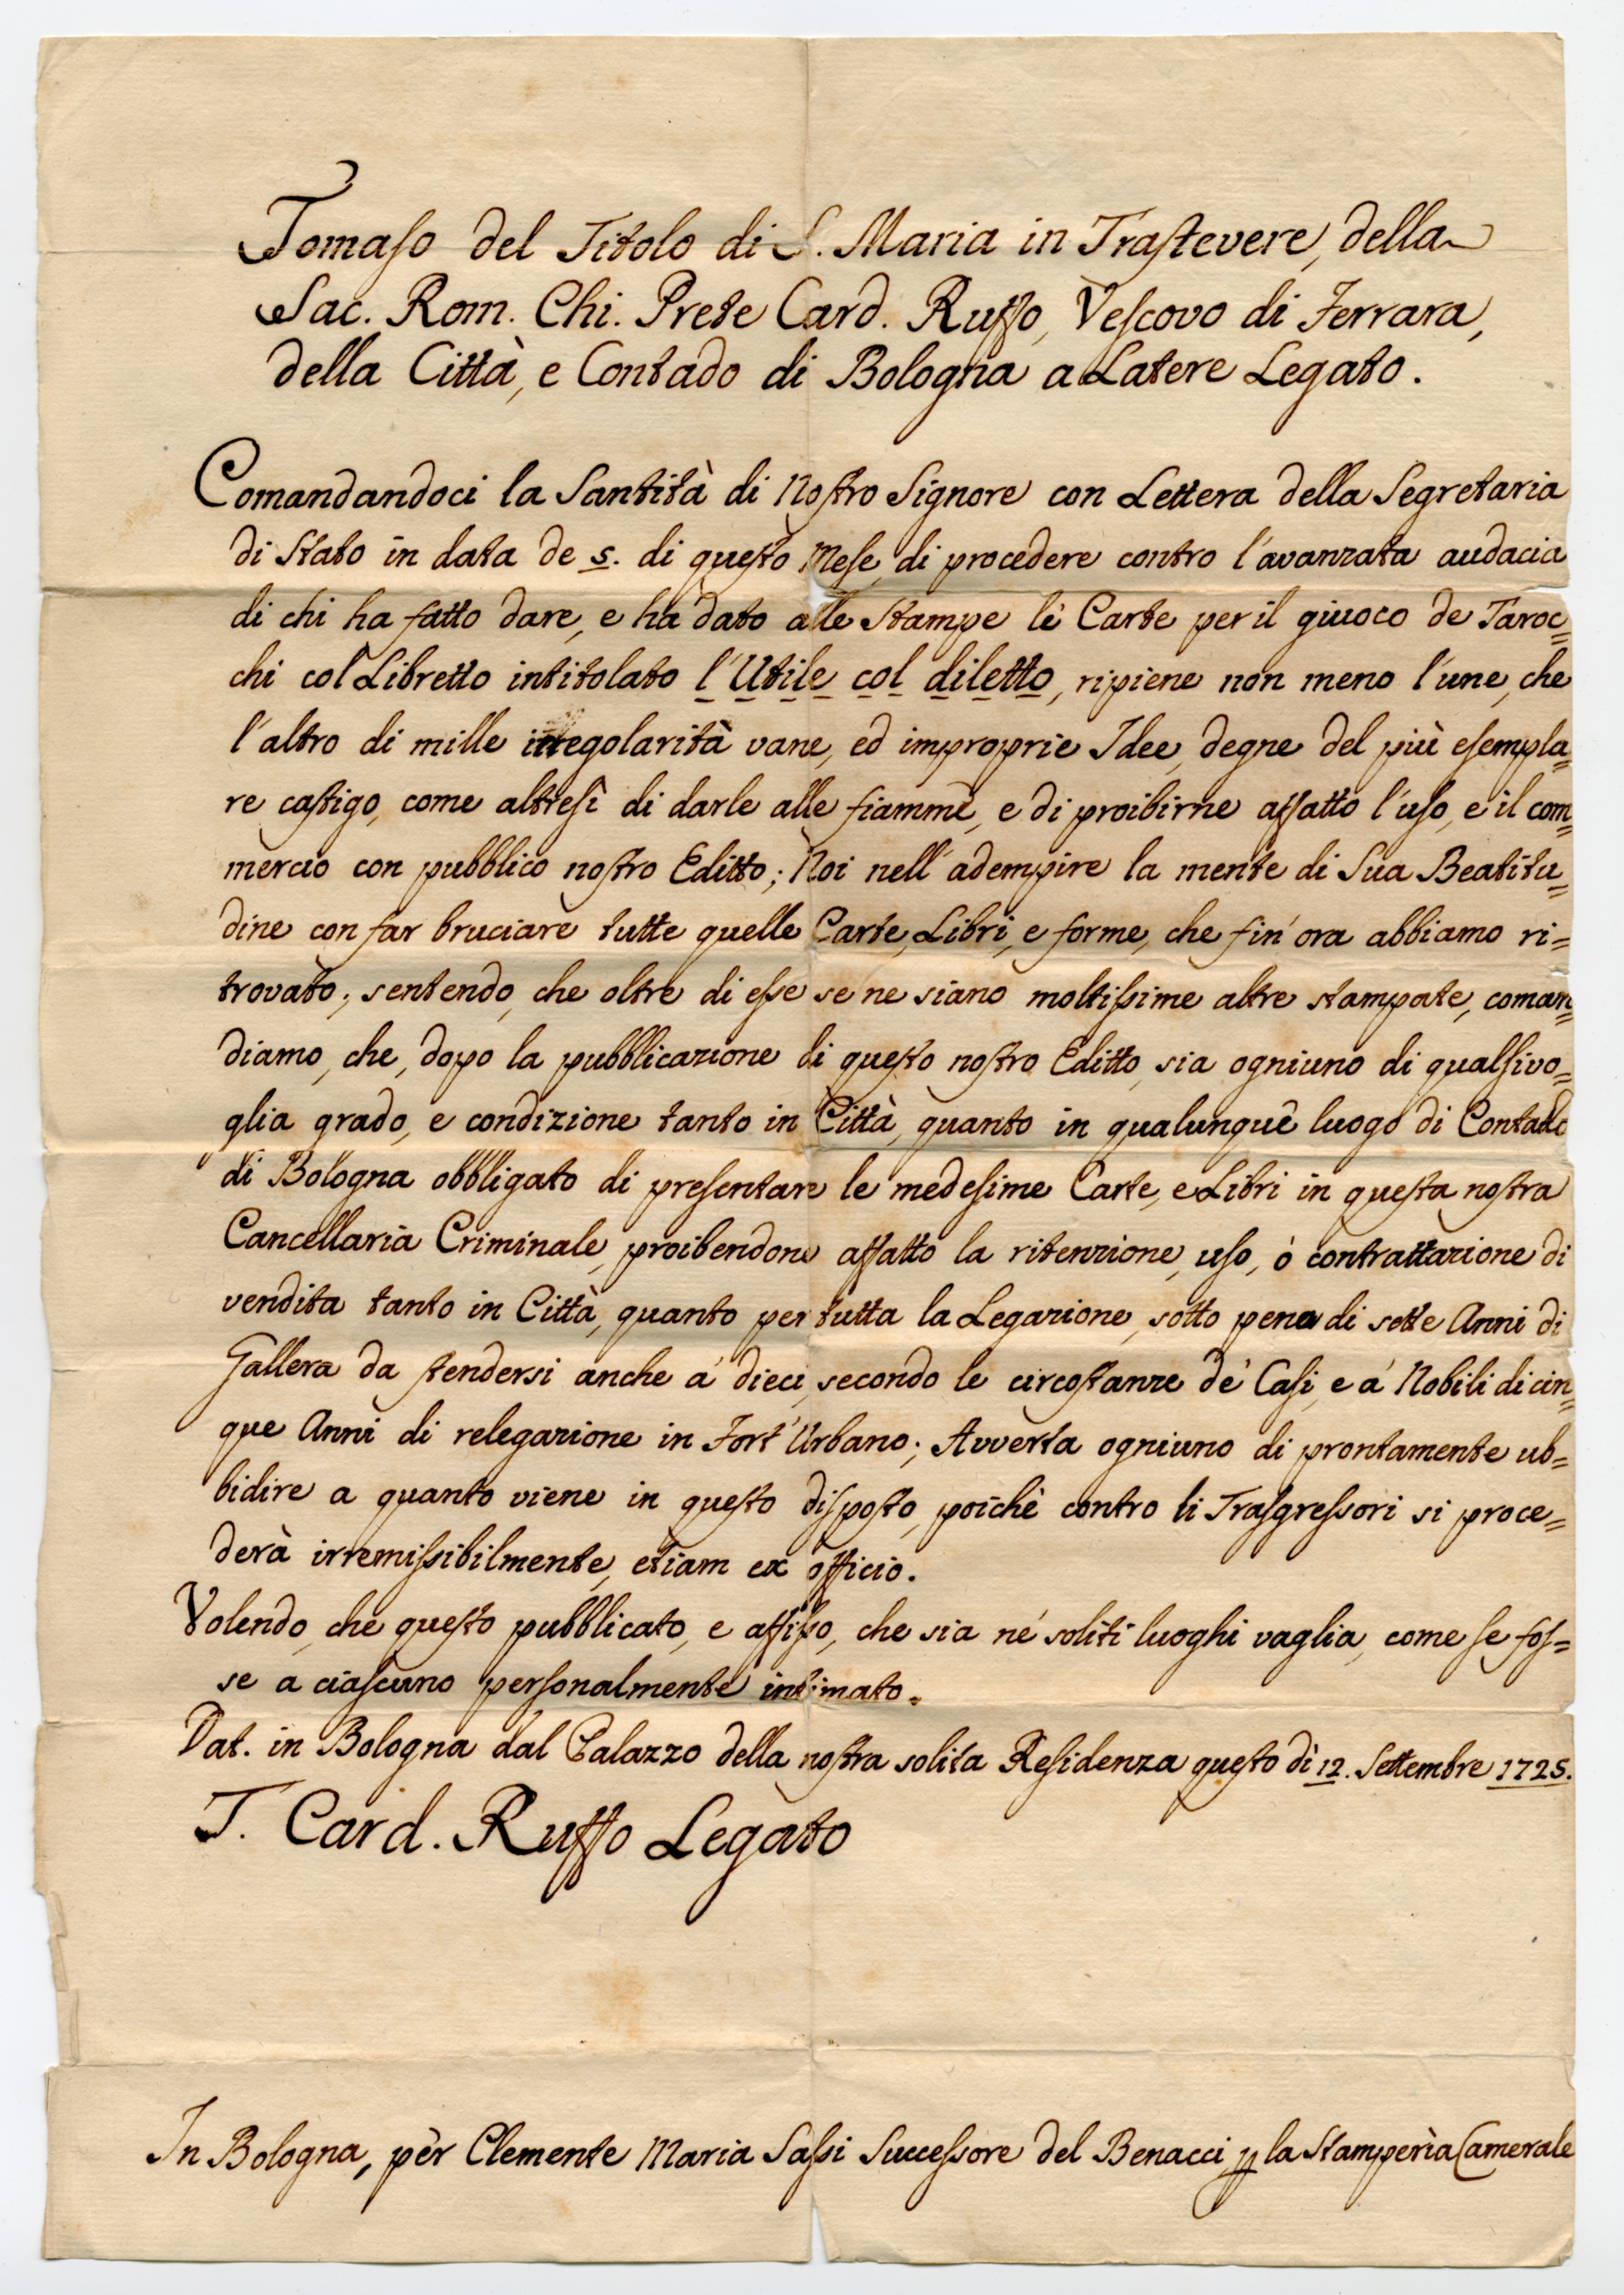 Tomaso del Titolo di S. Maria in Trastevere, della
Sac. Rom. Chi. Prete Card. Ruffo, Vescovo di Ferrara,
della Città, e Contado di Bologna a Latere Legato.
Comandandoci la Santità di Nostro Signore con Lettera della Segretaria
di Stato in data de 5. di questo Mese, di procedere contro l'avanzata audacia
di chi ha fatto dare, e ha dato alle stampe le Carte per il giuoco de Taroc=
chi col Libretto intitolato l'Utile col diletto, ripiene non meno l'une, che
l'altro di mille irregolarità vane, ed improprie Idee, degne del più esempla=
re castigo, come altresì di darle alle fiamme, e di proibirne affatto l'uso, e il com=
mercio con pubblico nostro Editto; Noi nell'adempire la mente di Sua Beatitu=
dine con far bruciare tutte quelle Carte, Libri, e forme, che fin'ora abbiamo ri=
trovato; sentendo, che oltre di esse se ne siano moltissime altre stampate, coman=
diamo, che, dopo la pubblicazione di questo nostro Editto, sia ogniuno di qualsivo=
glia grado, e condizione tanto in Città, quanto in qualunque luogo di Contado
di Bologna obbligato di presentare le medesime Carte, e Libri in questa nostra
Cancellaria Criminale, proibendone affatto la ritenzione, uso, ò contrattazione di
vendita tanto in Città, quanto per tutta la Legazione, sotto pena di sette Anni di
Gallera da stendersi anche a' dieci, secondo le circostanze de' Casi, e a' Nobili di cin=
que Anni di relegazione in Fort'Urbano; Avverta ogniuno di prontamente ub=
bidire a quanto viene in questo disposto, poichè contro li Trasgressori si proce=
derà irremissibilmente, etiam ex officio.
Volendo, che questo pubblicato, e affisso, che sia ne' soliti luoghi vaglia, come se fos=
se a ciascuno personalmente intimato.
Dat. in Bologna dal Palazzo della nostra solita Residenza questo dì 12. Settembre 1725.
T. Card. Ruffo Legato
In Bologna, per Clemente Maria Sassi Successore del Benacci p la Stamperìa Camerale